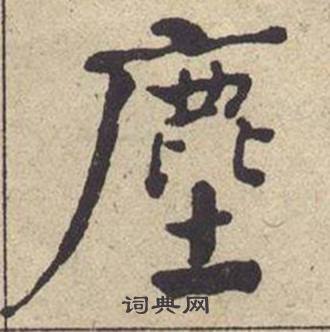 塵
词典网